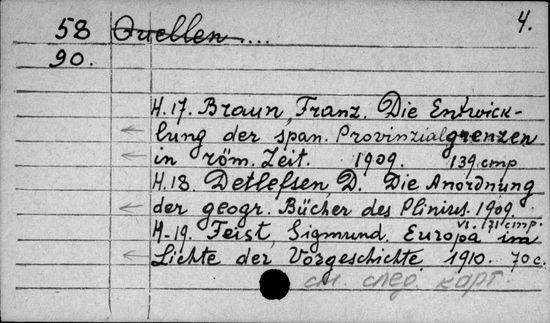 58 Quellen ... 4.
90.
H.17. Braun, Franz. Die Entwick-
lung der span. Provinzialgrenzen
in röm. Zeit. 1909. 139 стр
H.18. Detlefsen D. Die Anordnung
der geogr. Bücher des Plinius. 1909.
VI. 171 стр.
H-19. Feist, Sigmund. Europa im
Lichte der Vorgeschichte 1910. 70 с.
см. след. карт.